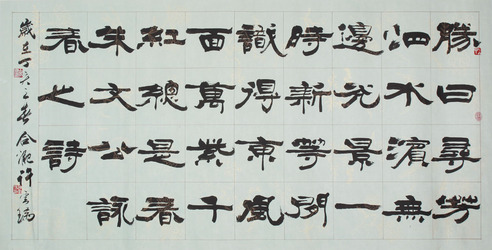 勝日尋芳
泗水濱無
邊光景一
時新等閒
識得東風
面萬紫千
紅總是春
朱文公詠
春之詩
歲在丁亥之春合肥許